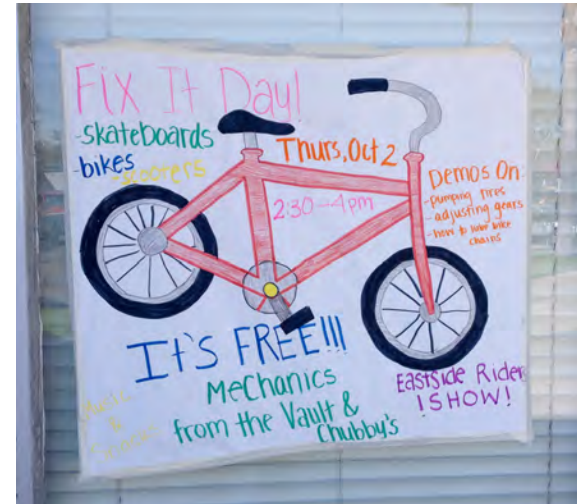 Fix It Day!
-skateboards
-bikes
-scooters
Thurs, Oct 2
2:30-4pm
Demos On:
-pumping tires
-adjusting gears
-how to lube bike
chains
It's FREE!!!
Mechanics
from the Vault &
Chubby's
Eastside Rider
!SHOW!
&